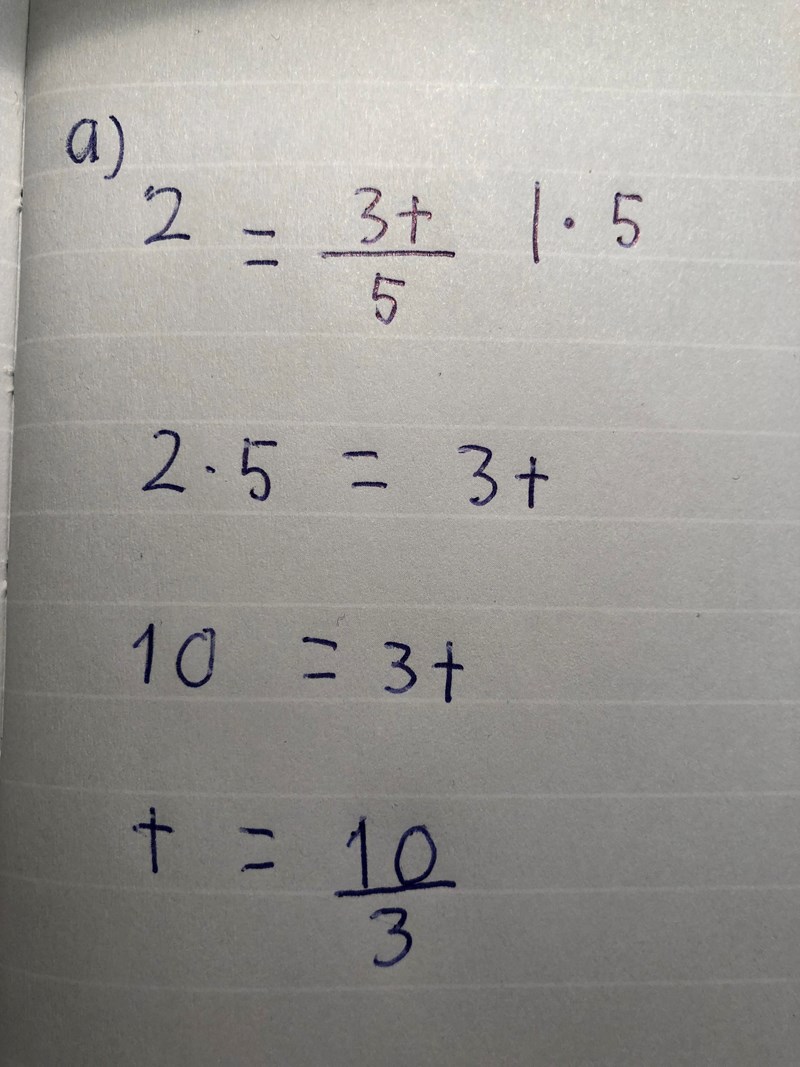 a)
2 = 3t/5 |· 5
2·5 = 3t
10 = 3t
t = 10/3